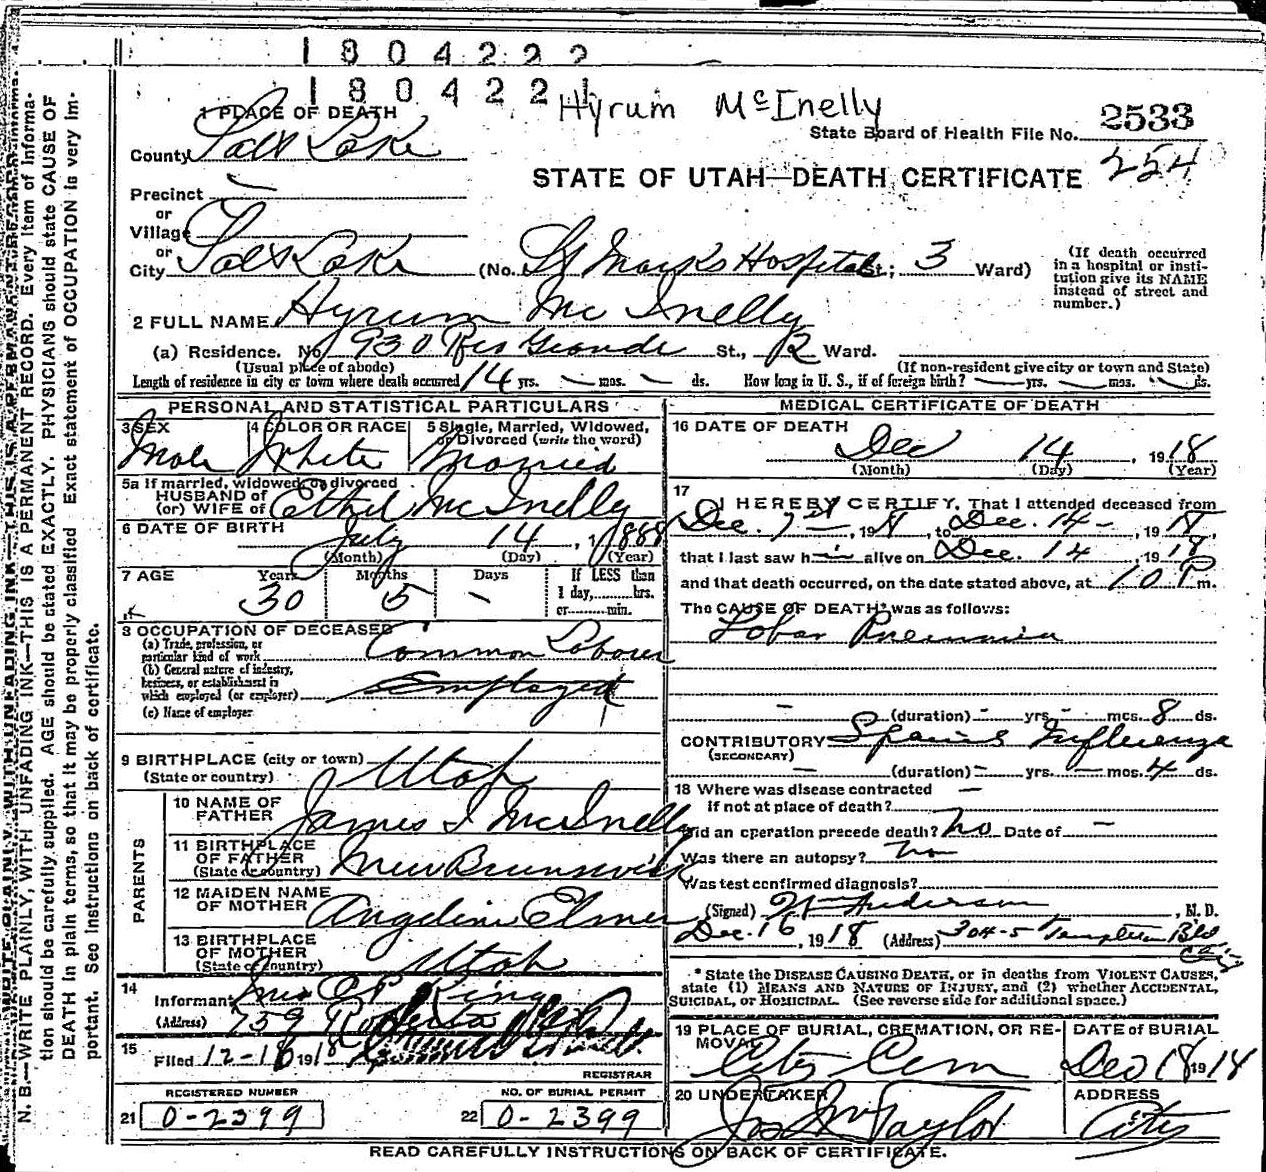 1804222
1804221
Hyrum McInelly
1 PLACE OF DEATH
State Board of Health File No. 2533
254
County Salt Lake
STATE OF UTAH—DEATH CERTIFICATE
Precinct —
or
Village
or
City Salt Lake (No. St Marks Hospital St; 3 Ward)
(If death occurred in a hospital or insti-
tution give its NAME
instead of street and
number.)
2 FULL NAME Hyrum Mc Inelly
(a) Residence. No. 930 Rio Grande St., 2 Ward.
(Usual place of abode) (If non-resident give city or town and State)
Length of residence in city or town where death occurred 14 yrs. — mos. — ds. How long in U. S., if of foreign birth? — yrs. — mos. — ds.
PERSONAL AND STATISTICAL PARTICULARS
3 SEX 4 COLOR OR RACE 5 Single, Married, Widowed,
or Divorced (write the word)
Male White Married
5a If married, widowed, or divorced
HUSBAND of
(or) WIFE of Ethel McInelly
6 DATE OF BIRTH July 14, 1888
(Month) (Day) (Year)
7 AGE Years Months Days If LESS than
1 day,......hrs.
or......min.
30 5 —
8 OCCUPATION OF DECEASED
(a) Trade, profession, or
particular kind of work Common Laborer
(b) General nature of industry,
business, or establishment in
which employed (or employer) Employed
(c) Name of employer
9 BIRTHPLACE (city or town)
(State or country) Utah
PARENTS
10 NAME OF
FATHER James I McInelly
11 BIRTHPLACE
OF FATHER
(State or country) New Brunswick
12 MAIDEN NAME
OF MOTHER Angeline Elmer
13 BIRTHPLACE
OF MOTHER
(State or country) Utah
14
Informant King
(Address) 759 Roberta
15
Filed 12-16 1918
REGISTRAR
REGISTERED NUMBER NO. OF BURIAL PERMIT
21 0-2399 22 0-2399
MEDICAL CERTIFICATE OF DEATH
16 DATE OF DEATH
Dec 14, 1918
(Month) (Day) (Year)
17
I HEREBY CERTIFY, That I attended deceased from
Dec. 7, 1918, to Dec. 14—, 1918,
that I last saw h alive on Dec. 14, 1918
and that death occurred, on the date stated above, at 10 P m.
The CAUSE OF DEATH* was as follows:
Lobar Pneumonia
— (duration) — yrs. — mos. 8 ds.
CONTRIBUTORY Spanish Influenza
(SECONDARY)
— (duration) — yrs. — mos. 4 ds.
18 Where was disease contracted —
if not at place of death?
Did an operation precede death? No Date of —
Was there an autopsy? No
Was test confirmed diagnosis?
(Signed) Anderson, M. D.
Dec. 16, 1918 (Address) 304-5 Templeton Bld
City
*State the DISEASE CAUSING DEATH, or in deaths from VIOLENT CAUSES,
state (1) MEANS AND NATURE OF INJURY, and (2) whether ACCIDENTAL,
SUICIDAL, or HOMICIDAL. (See reverse side for additional space.)
19 PLACE OF BURIAL, CREMATION, OR RE-
MOVAL DATE of BURIAL
City Cem Dec 18 1918
20 UNDERTAKER ADDRESS
Jos Wm Taylor City
READ CAREFULLY INSTRUCTIONS ON BACK OF CERTIFICATE.
N. B.—WRITE PLAINLY, WITH UNFADING INK—THIS IS A PERMANENT RECORD. Every item of informa-
tion should be carefully supplied. AGE should be stated EXACTLY. PHYSICIANS should state CAUSE OF
DEATH in plain terms, so that it may be properly classified. Exact statement of OCCUPATION is very im-
portant. See instructions on back of certificate.